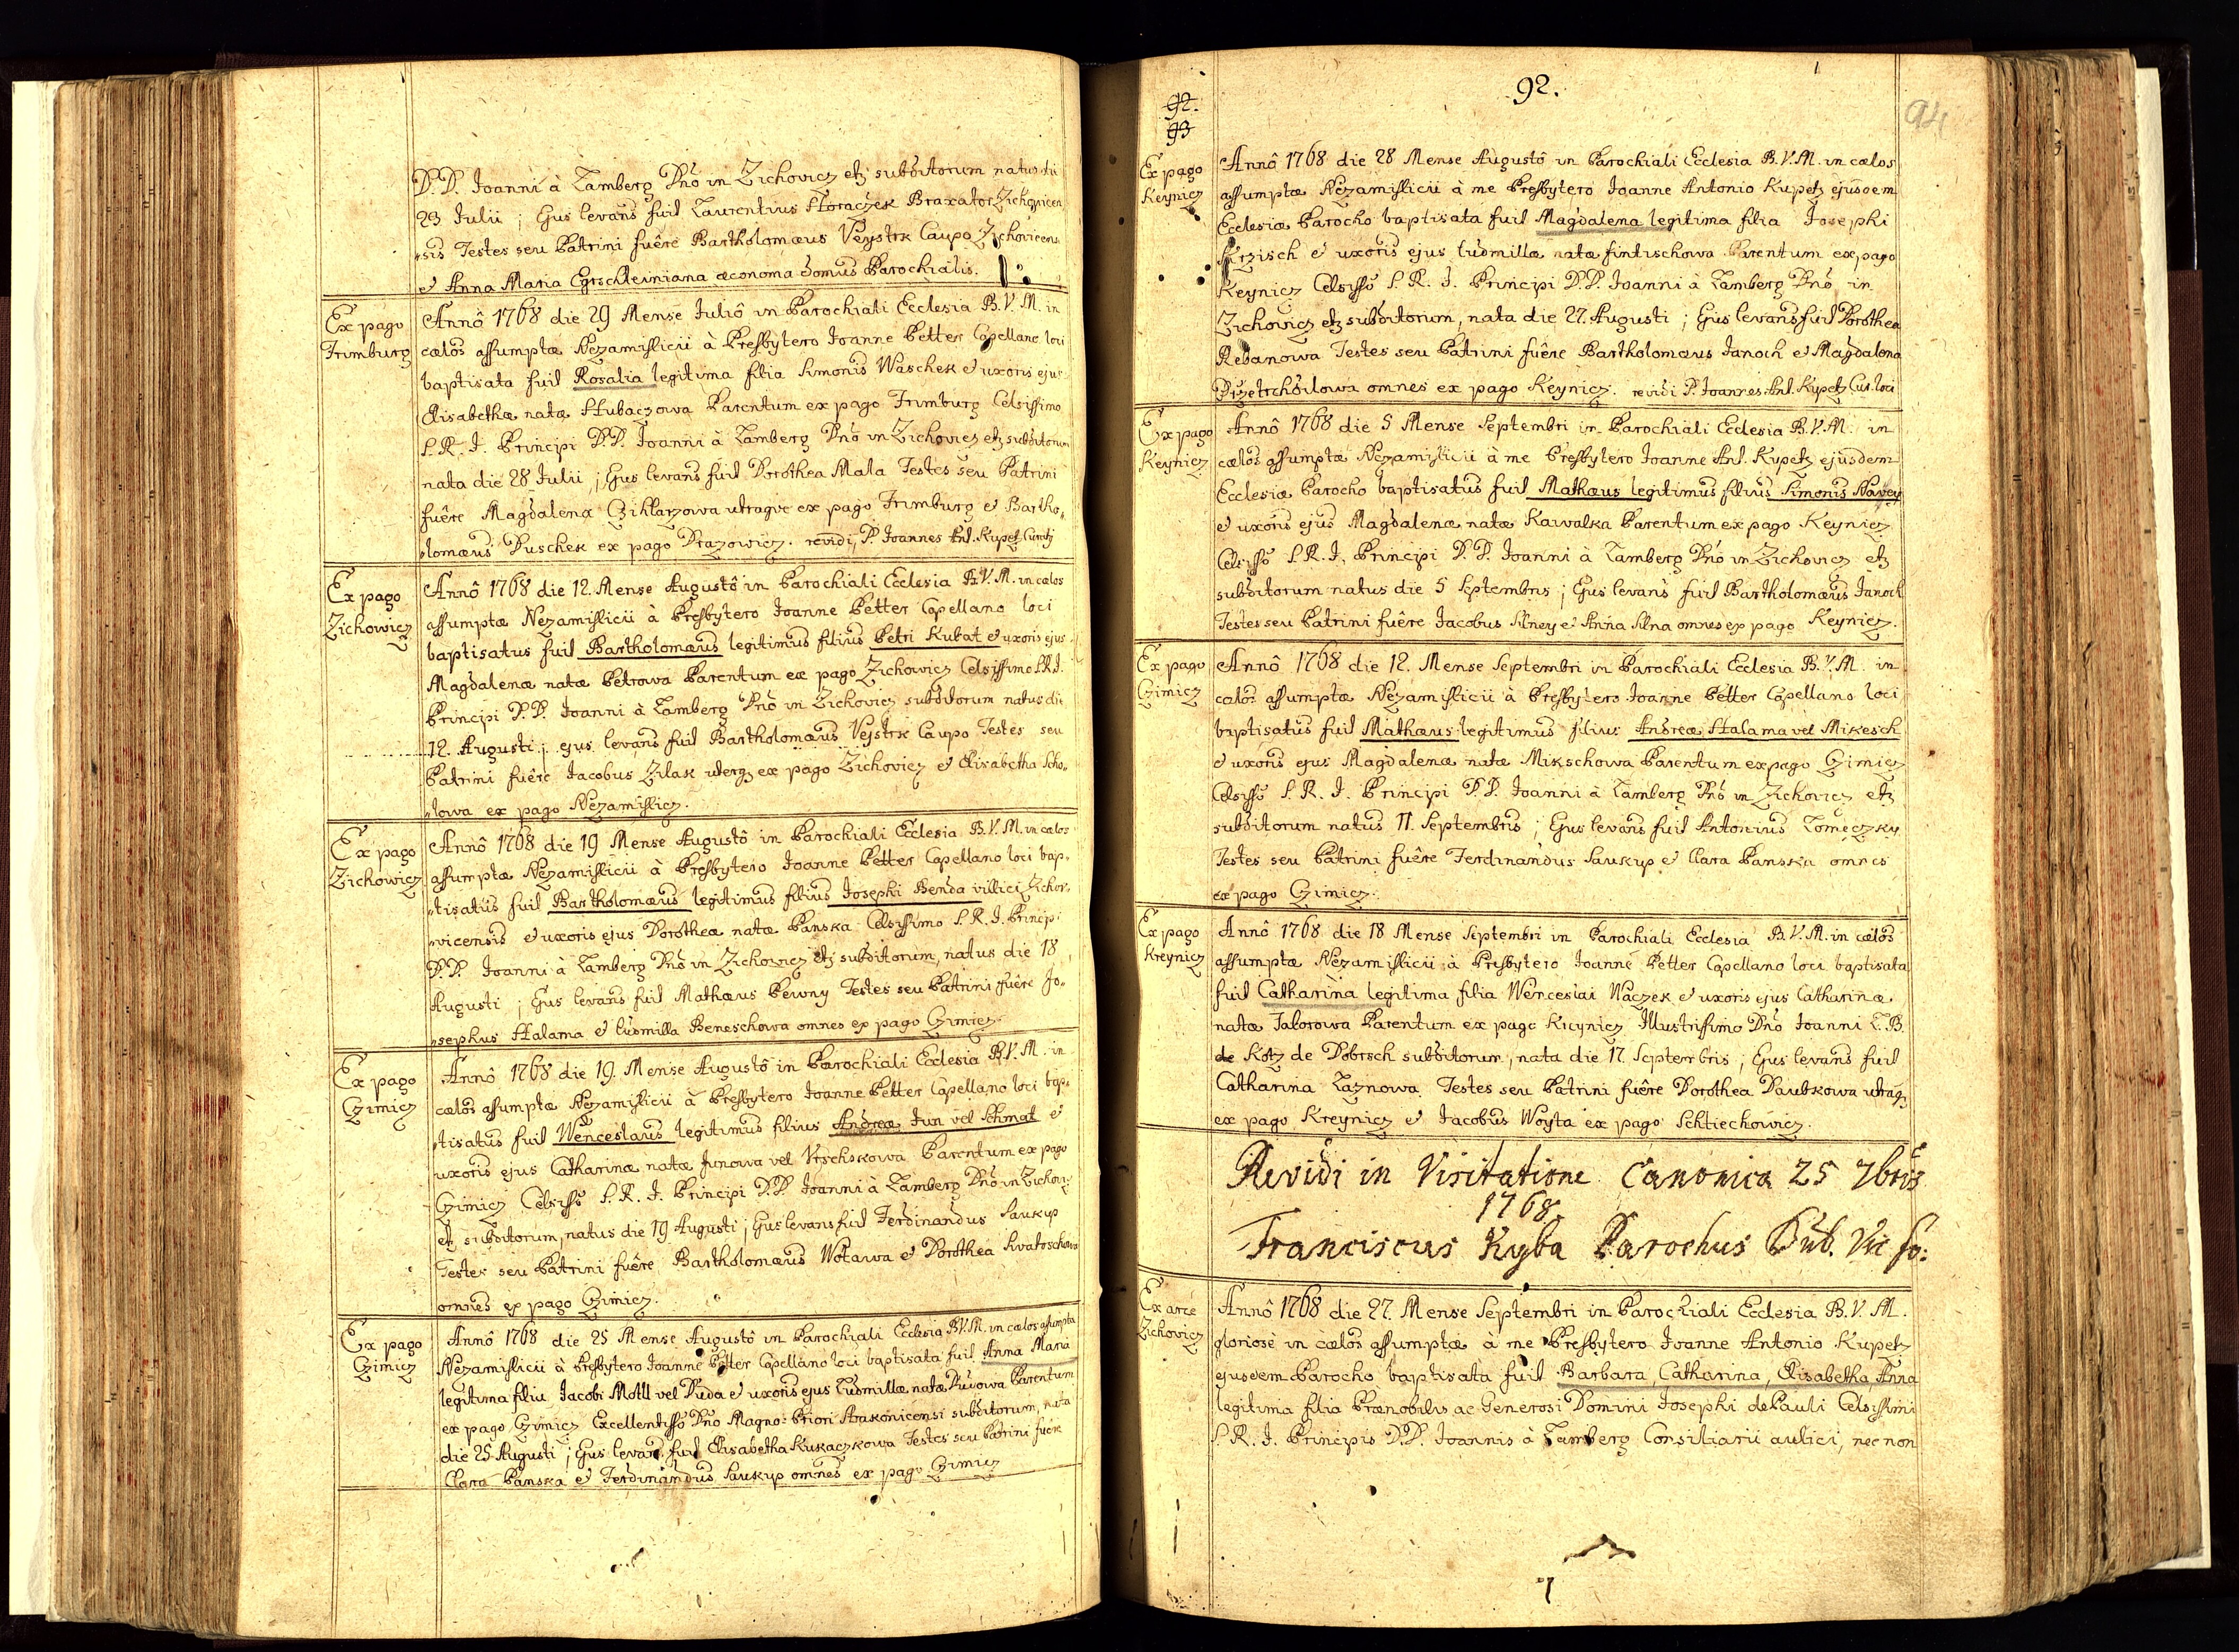 D.D. Joanni à Lamberg Dnô in Zichovicz etz subditorum natus die
23 Julii ; Ejus levans fuit Laurentius Horaczek Braxator Zichovicen
sis Testes seu Patrini fuêre Bartholomæus Veystrk Caupo Zichovicen
sis et Anna Maria œconoma domus Parochialis.
Ex pago
Frimburg
Annô 1768 die 29 Mense Juliô in Parochiali Ecclesia B.V.M. in
cælos assumptæ Nezamislicii à Presbytero Joanne Petter Capellano loci
baptisata fuit Rosalia legitima filia Simonis Waschek et uxoris ejus
Elisabethæ natæ Hubaczowa Parentum ex pago Frimburg Celsissimo
S.R.I. Principi D.D. Joanni à Lamberg Dnô in Zichovicz etz subditorum
nata die 28 Julii, ; Ejus levans fuit Dorothea Mala Testes seu Patrini
fuêre Magdalena Czihlarzowa utraque ex pago Frimburg et Bartho,,
,,lomæus Duschek ex pago Drazowicz. revidi, P. Joannes Ant. Kupetz
Ex pago
Zichowicz
Annô 1768 die 12. Mense Augustô in Parochiali Ecclesia B.V.M. in cælos
assumptæ Nezamislicii à Presbytero Joanne Petter Capellano loci
baptisatus fuit Bartholomæus legitimus filius Petri Kubat et uxoris ejus
Magdalenæ natæ Petrowa Parentum ex pago Zichowicz Celsissimo S.R.I.
Principi D.D. Joanni à Lamberg Dnô in Zichovicz subditorum natus die
12. Augusti ; ejus levans fuit Bartholomæus Vejstrk Caupo Testes seu
Patrini fuêre Jacobus Zilak uterqz ex pago Zichovicz et Elisabetha Scho,,
,,lowa ex pago Nezamislicz.
Ex pago
Zichowicz
Annô 1768 die 19 Mense Augustô in Parochiali Ecclesia B.V.M. in cælos
assumptæ Nezamislicii à Presbytero Joanne Petter Capellano loci bap,,
,,tisatus fuit Bartholomæus legitimus filius Josephi Benda villici Zicho,,
,,vicensis et uxoris ejus Dorotheæ natæ Panska Celsissimo S.R.I. Principi
D.D. Joanni à Lamberg Dnô in Zichowicz etz subditorum, natus die 18
Augusti ; Ejus levans fuit Mathæus Pewny Testes seu Patrini fuêre Jo,,
,,sephus Halama et Ludmilla Beneschowa omnes ex pago Czimicz
Ex pago
Czimicz
Annô 1768 die 19. Mense Augustô in Parochiali Ecclesia B.V.M. in
cælos assumptæ Nezamislicii à Presbytero Joanne Petter Capellano loci bap,,
,,tisatus fuit Wenceslaus legitimus filius Andreæ Jun vel Schmat et
uxoris ejus Catharinæ natæ Junowa vel Parentum ex pago
Czimicz Celsissô S.R.I. Principi D.D. Joanni à Lamberg Dnô in Zichovicz
etz subditorum, natus die 19 Augusti ; Ejus levans fuit Ferdinandus Saukup
Testes seu Patrini fuêre Bartholomæus Wotawa et Dorothea Swatoschowa
omnes ex pago Czimicz.
Ex pago
Czimicz
Annô 1768 die 25 Mense Augustô in Parochiali Ecclesia B.V.M. in cælos assumptæ
Nezamislicii à Presbytero Joanne Petter Capellano loci baptisata fuit Anna Maria
legitima filia Jacobi Motll vel Duda et uxoris ejus Ludmillæ natæ Parentum
ex pago Czimicz Excellentissô Dnô Magno: Priori Strakonicensi subditorum, nata
die 25 Augusti ; Ejus levans fuit Elisabetha Kukaczkowa Testes seu Patrini fuêre
Clara Panska et Ferdinandus Saukup omnes ex pago Czimicz
92.
92.
93
94
Ex pago
Keynicz
Annô 1768 die 28 Mense Augustô in Parochiali Ecclesia B.V.M. in cælos
assumptæ Nezamislicii à me Presbytero Joanne Antonio Kupetz ejusdem
Ecclesiæ Parocho baptisata fuit Magdalena legitima filia Josephi
Krzisch et uxoris ejus Ludmillæ natæ Fintischowa Parentum ex pago
Keynicz Celsissô S.R.I. Principi D.D. Joanni à Lamberg Dnô in
Zichovicz etz subditorum, nata die 27. Augusti ; Ejus levans fuit Dorothea
Rebanowa Testes seu Patrini fuêre Bartholomæus Janoch et Magdalena
omnes ex pago Keynicz. revidi P. Joannes Ant. Kupetz Cur. loci
Ex pago
Keynicz
Annô 1768 die 5 Mense Septembri in Parochiali Ecclesia B.V.M. in
cælos assumptæ Nezamislicii à me Presbytero Joanne Ant. Kupetz ejusdem
Ecclesiæ Parocho baptisatus fuit Mathæus legitimus filius Simonis Navey
et uxoris ejus Magdalenæ natæ Kawalka Parentum ex pago Keynicz
Celsissô S.R.I. Principi D.D. Joanni à Lamberg Dnô in Zichovicz etz
subditorum natus die 5 Septembris ; Ejus levans fuit Bartholomæus Janoch
Testes seu Patrini fuêre Jacobus Silney et Anna Silna omnes ex pago Keynicz.
Ex pago
Czimicz
Annô 1768 die 12. Mense Septembri in Parochiali Ecclesia B.V.M. in
cælos assumptæ Nezamislicii à Presbytero Joanne Petter Capellano loci
baptisatus fuit Mathæus legitimus filius Andreæ Halama vel Mikesch
et uxoris ejus Magdalenæ natæ Mikschowa Parentum ex pago Czimicz
Celsissô S.R.I. Principi D.D. Joanni à Lamberg Dnô in Zichovicz etz
subditorum natus 11 Septembris ; Ejus levans fuit Antonius Lomeczky
Testes seu Patrini fuêre Ferdinandus Saukup et Clara Panska omnes
ex pago Czimicz.
Ex pago
Kreynicz
Annô 1768 die 18 Mense Septembri in Parochiali Ecclesia B.V.M. in cælos
assumptæ Nezamislicii à Presbytero Joanne Petter Capellano loci baptisata
fuit Catharina legitima filia Wenceslai Waczek et uxoris ejus Catharinæ
natæ Jalorowa Parentum ex pago Kreynicz Illustrissimo Dnô Joanni L.B.
de Kotz de Dobrsch subditorum, nata die 17 Septembris ; Ejus levans fuit
Catharina Laznowa Testes seu Patrini fuêre Dorothea Daubkowa utraqz
ex pago Kreynicz et Jacobus Woyta ex pago Schtiechowicz.
Revidi in Visitatione Canonica 25 7bris
1768
Franciscus Kyba Parochus Dub. Vic fo:
Ex arce
Zichovicz
Annô 1768 die 27. Mense Septembri in Parochiali Ecclesia B.V.M.
gloriosè in cælos assumptæ à me Presbytero Joanne Antonio Kupetz
ejusdem Parocho baptisata fuit Barbara, Catharina, Elisabetha, Anna
legitima filia Prænobilis ac Generosi Domini Josephi de Pauli Celsissimi
S.R.I. Principis D.D. Joannis à Lamberg Consiliarii aulici, nec non